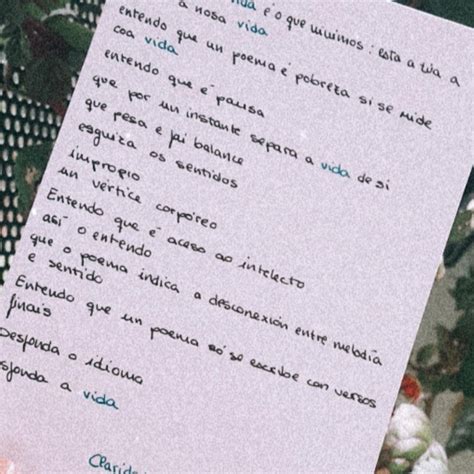 vida é o que vivimos: esta a túa a
a nosa vida
entendo que un poema é pobreza si se mide
coa vida
entendo que é pausa
que por un instante separa a vida de si
que pesa e fai balance
esguiza os sentidos
impropio
un vértice corpóreo
Entendo que é aceso ao intelecto
así o entendo
que o poema indica a desconexión entre melodía
e sentido
Entendo que un poema só se escribe con versos
finais
Desfonda o idioma
sfonda a vida
Claride